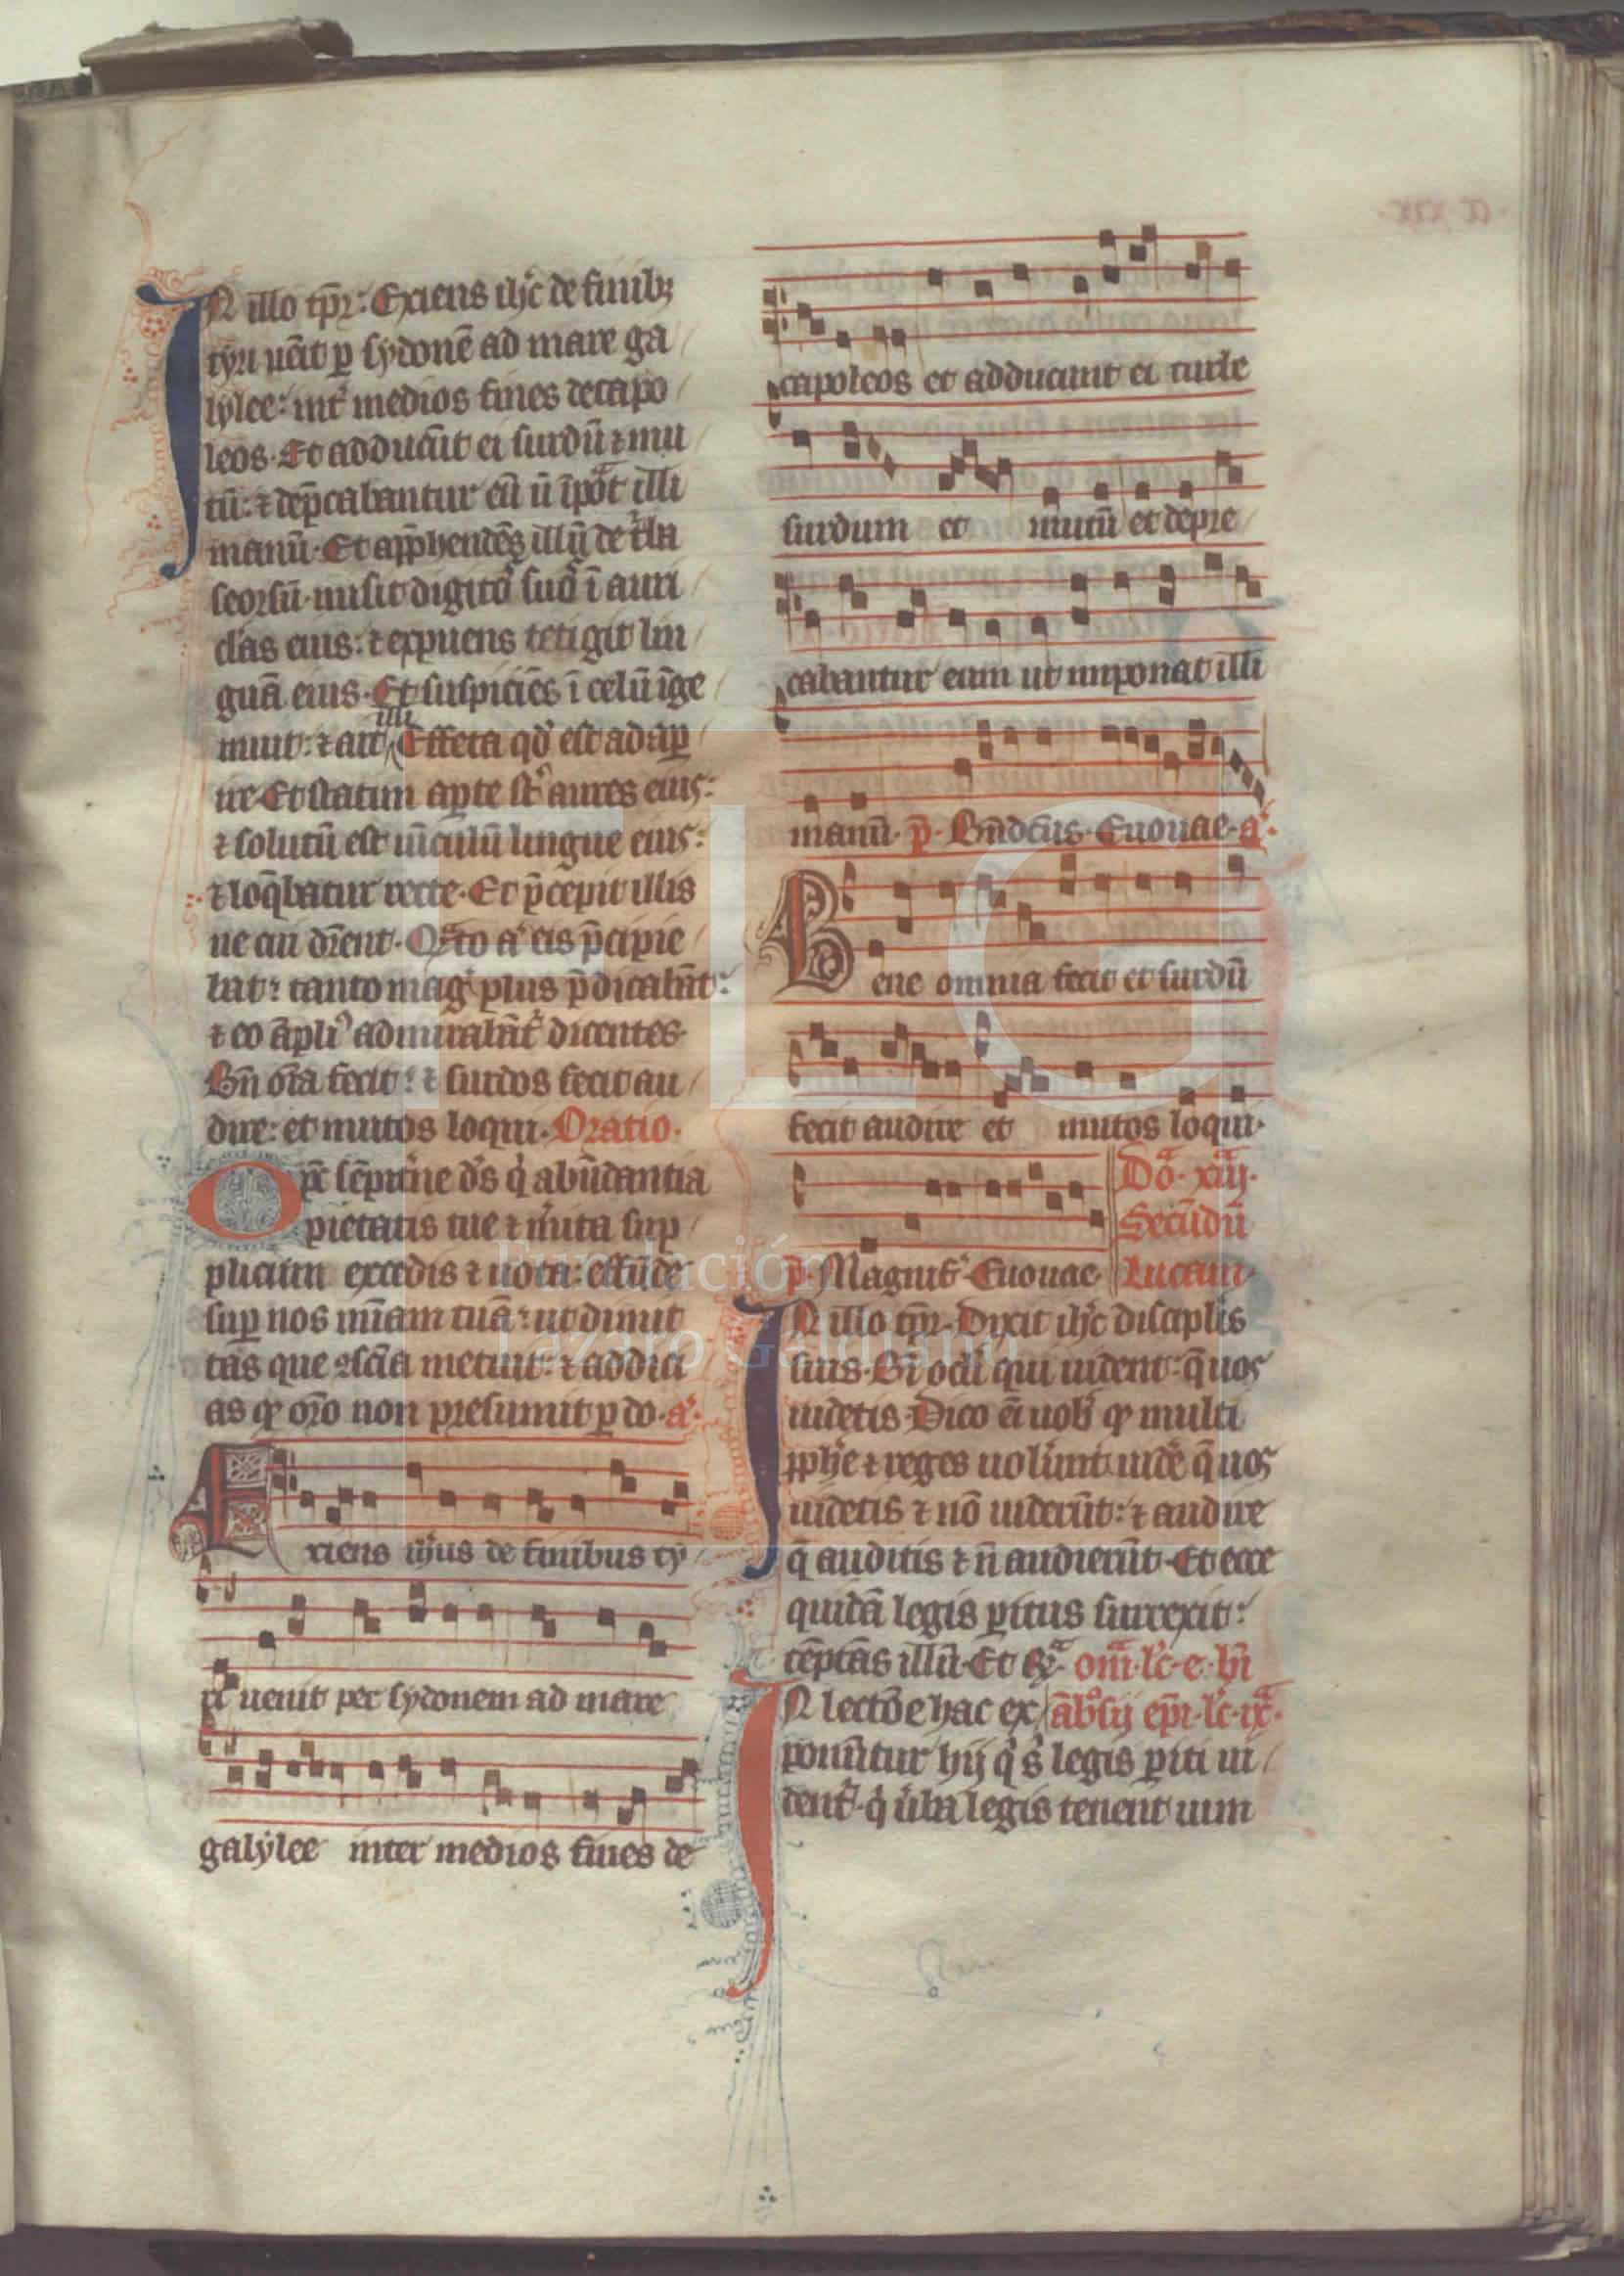 IN illo tp̄r: Exiens ih̄c de finib;
tyri uēit ꝑ sydonē ad mare ga
lylee: int̾ medios fines decapo
leos. Et adducūt ei surdū ⁊ mu
tū: ⁊ dep̄cabantur eū ut īpōat illi
manū. Et app̄hendēs illū de t̾ba
seorsū. misit digitos suos ī auri
clas eius: ⁊ expuens tetigit lin
guā eius. Et suspiciēs ī celū īge
muit: ⁊ ait illi Effeta qd̾ est adap̄
ire Et statim apte st̄ aures eius:
⁊ solutū est uīculū lingue eius:
⁊ loq̄batur recte. Et p̄cepit illis
ne cui d̄rent. Q̄to a͛ eis p̄cipie
bat: tanto mag͛ plus p̄dicabāt:
⁊ eo āpli᾿ admirabāt͛ dicentes.
Bn̄ oīa fecit: ⁊ surdos fecit au
dire: et mutos loqui. Oratio.
Op̄c sēpit̾ne d̄s q̇ abūdantia
pietatis tue ⁊ m̾ita sup
plicum excedis ⁊ uota: effūde
sup nos mīam tuā: ut dimit
tas que ꝯscīa metuit: ⁊ addici
as qꝫ or̄o non presumit p do. a͛.
Exiens ih̄us de finibus ty
ri uenit per sydonem ad mare
galylee inter medios fines de
capoleos et adducunt ei turbe
surdum et mutū et depre
cabantur eum ut imponat illi
manū. p̄. Bn̄dc̄us. Euouae. a͛.
Bene omnia fecit et surdū
fecit audire et mutos loqui.
Dō. xiij.
Secūdū
p̄. Magnif͛. Euouae. Lucam.
IN illo tp̄r. Dixit ih̄c discipl̄is
suis. Bī oc̄li qui uident: q̄ uos
uidetis. Dico ēī uob̾ qꝫ multi
pph̄e ⁊ reges uol̾unt uide᷑ q̄ uos
uidetis ⁊ nō uiderūt: ⁊ audire
q̄ auditis ⁊ n̄ audierūt. Et ecce
quidā legis ꝑitus surrexit:
tēptās illū. Et R̄. om̄. l̄c. e. b̄i
IN lectōe hac ex āb̄sij ep̄i. l̄c. ix̄.
ponūtur hij q̇ s̾ legis ꝑiti ui
dent͛. q̇ u̾ba legis tenent uim
Fundación
Lázaro Galdiano